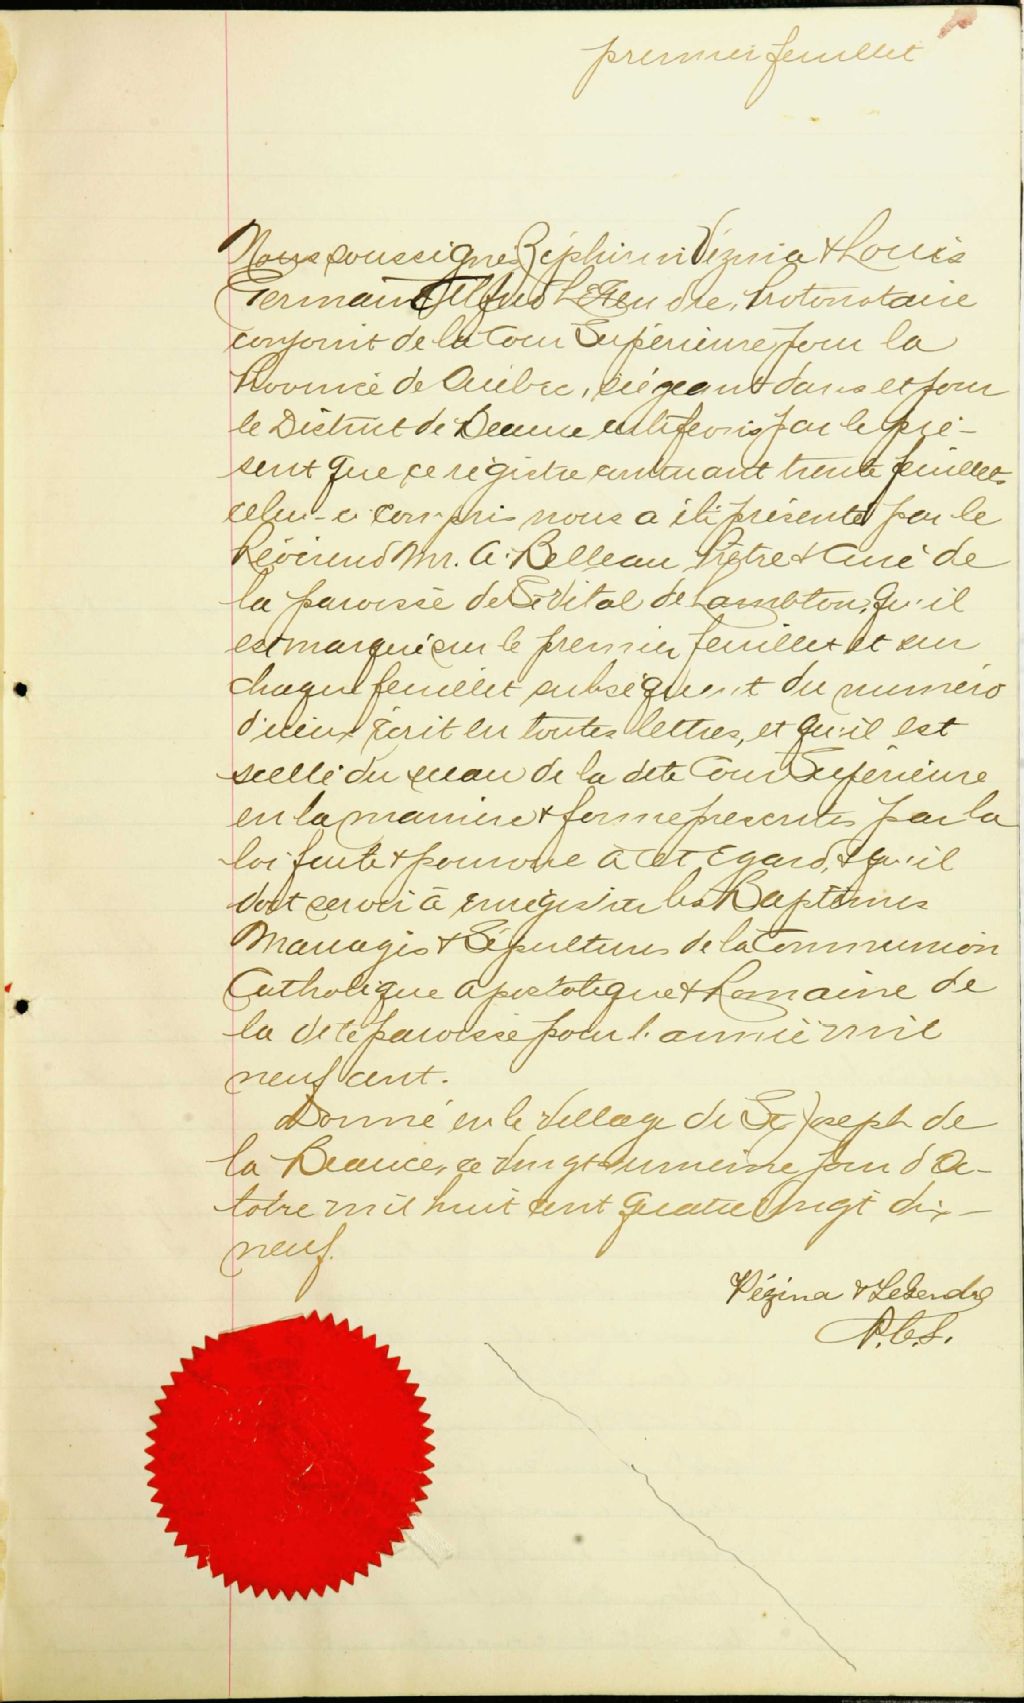 premier feuillet
Nous soussignés Zéphirin Vézina & Louis
Germain Alfred LeGendre, Protonotaire
conjoint de la Cour Supérieure pour la
Province de Québec, siégeant dans et pour
le District de Beauce certifions par le pré-
sent que ce régistre contenant trente feuillets
celui-ci compris nous a été présenté par le
Révérend Mr. A. Belleau Prêtre & Curé de
la paroisse de St Vital de Lambton, qu'il
est marqué sur le premier feuillet et sur
chaque feuillet subséquent du numéro
d'iceux écrit en toutes lettres, et qu'il est
scellé du sceau de la dite Cour Supérieure
en la manière & forme prescrites par la
loi faite & pourvue à cet égard, & qu'il
doit servir à enrégistrer les Baptêmes
Mariages & Sépultures de la Communion
Catholique Apostolique & Romaine de
la dite paroisse pour l'année mil
neuf cent.
Donné en le village de St Joseph de
la Beauce, ce vingt unième jour d'Oc-
tobre mil huit cent quatre vingt dix-
neuf.
Vézina & LeGendre
P.C.S.